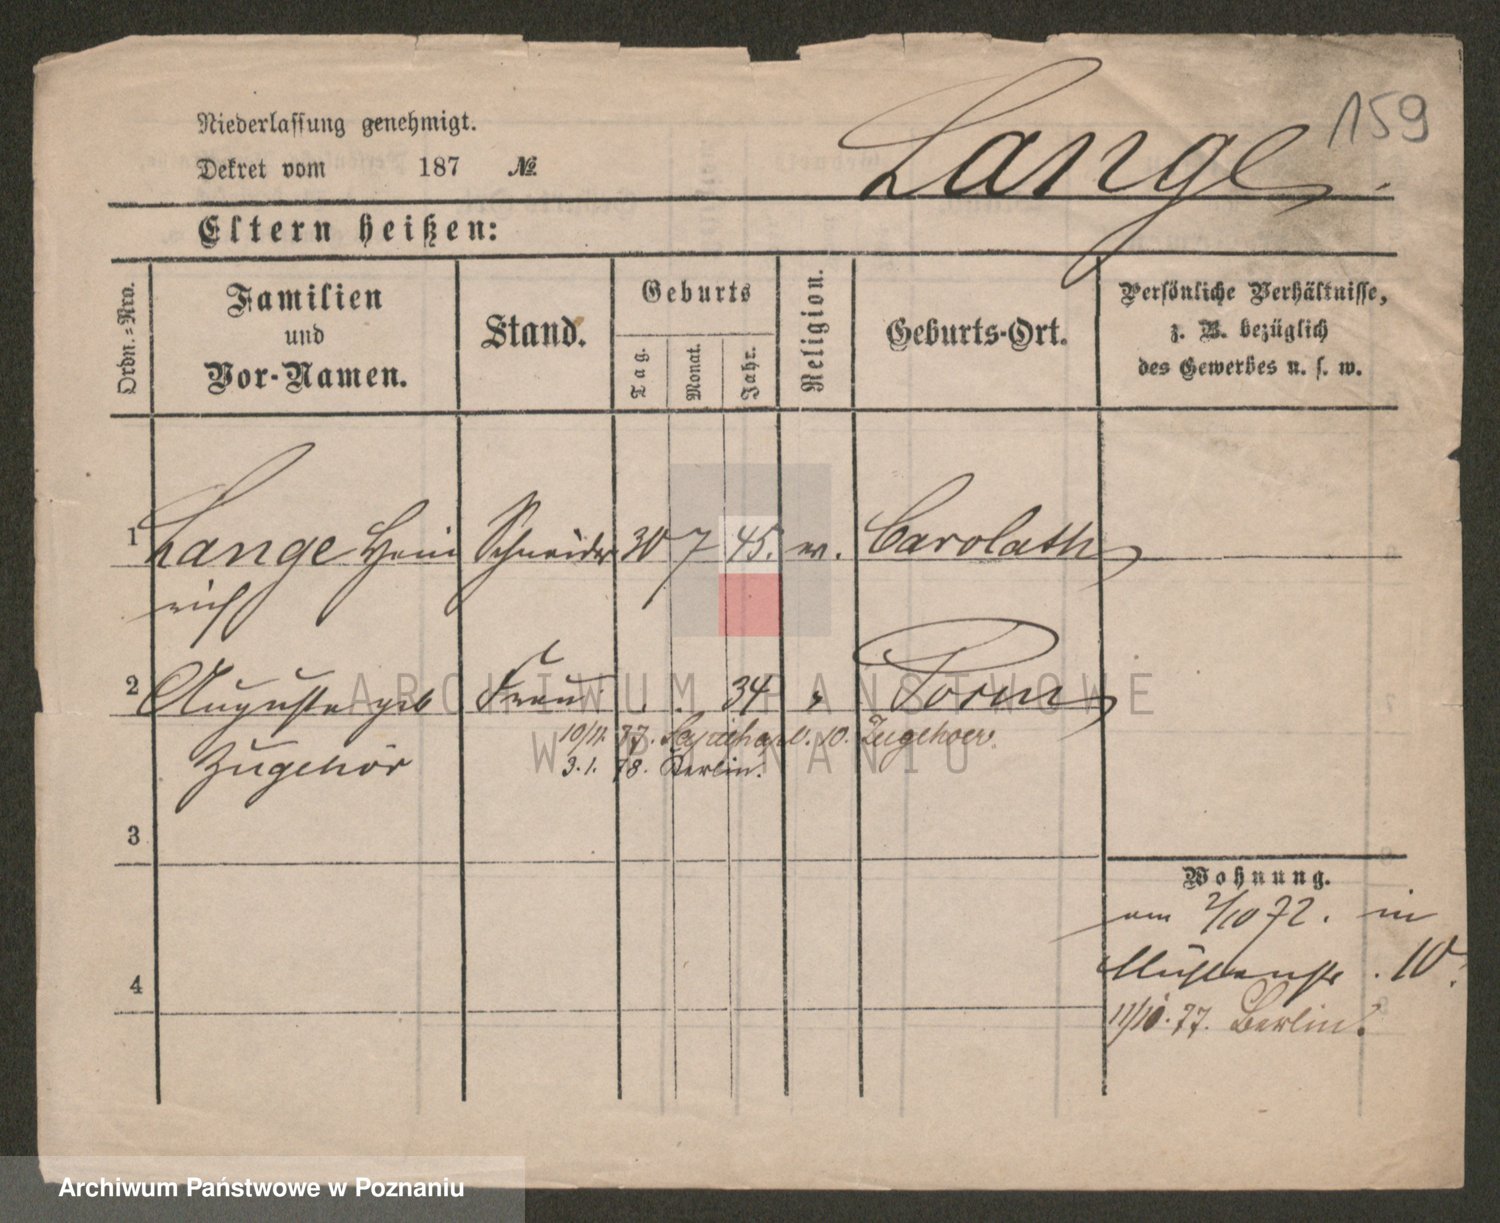 159
Niederlassung genehmigt.
Dekret vom 187 № Lange.
Eltern heißen:
Ordn.=Nro. Familien und Vor-Namen. Stand. Geburts Tag. Monat. Jahr. Religion. Geburts-Ort. Persönliche Verhältnisse, z. B. bezüglich des Gewerbes u. s. w.
1 Lange Hein Schneider 30 7 45. ev. Carolath
rich
2 Auguste geb Frau 34 " Posen
Zugehör
77. 10. Zugehoer.
3. 1. 78. Berlin.
3
4
Wohnung.
am 2/10 72. in
Mühlenstr. 10.
11/10. 77. Berlin.
ARCHIWUM PAŃSTWOWE
W POZNANIU
Archiwum Państwowe w Poznaniu